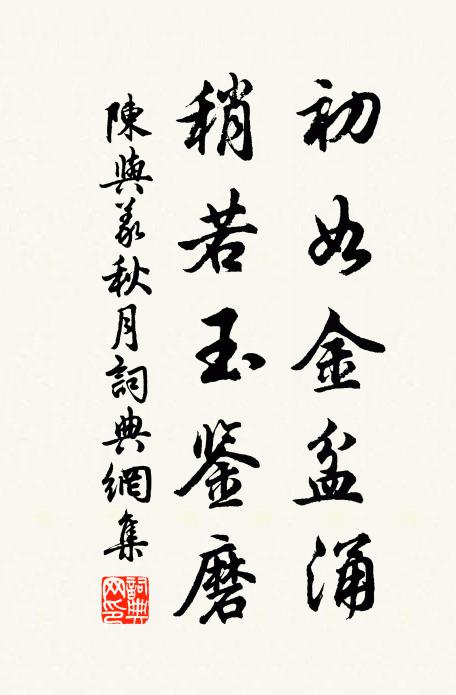 初如金盆涌
稍若玉鉴磨
陳與義秋月詞典網集
詞典網印